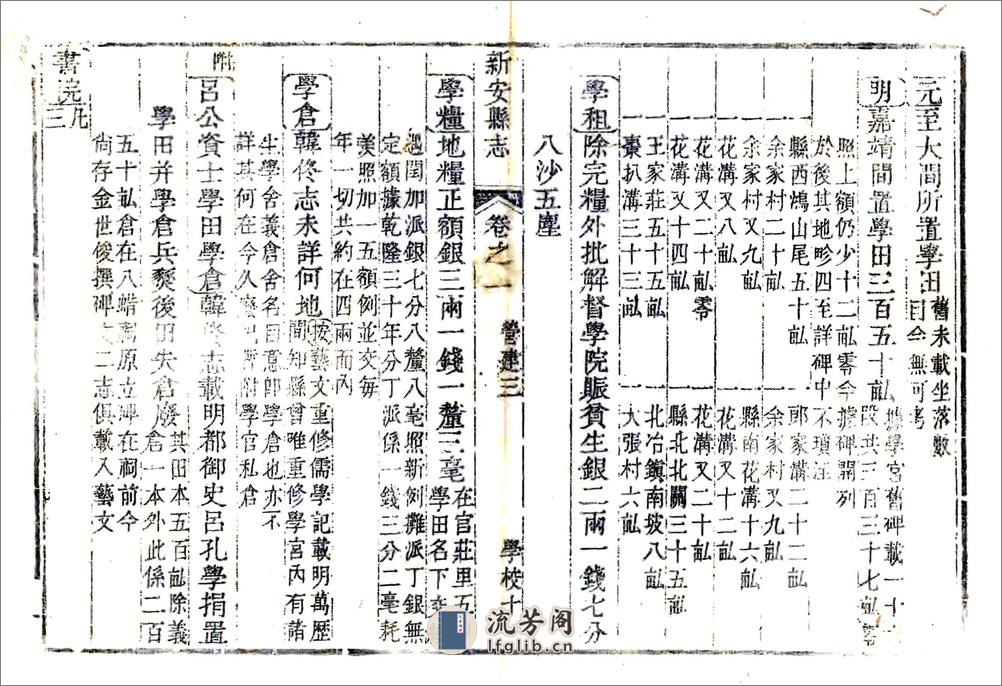 元至大間所置學田舊未載坐落數目今無可考
明嘉靖間置學田三百五十畝據學宮舊碑載一十段共三百三十七畝零
照上額仍少十二畝零今據碑開列
於後其地畛四至詳碑中不瑣注
一縣西鴻山尾五十畝
一郭家溝二十二畝
一余家村二十畝
一余家村又九畝
一余家村又九畝
一縣南花溝十六畝
一花溝又八畝
一花溝又十二畝
一花溝又二十畝零
一花溝又二十畝
一花溝又十四畝
一縣北北關三十五畝
一王家莊十五畝
一北冶鎮南坡八畝
一棗扒溝三十三畝
一大張村六畝
學租除完糧外批解督學院賑貧生銀二兩一錢七分
八沙五塵
新安縣志
卷之一
營建三
學校十
學糧地糧正額銀三兩一錢一釐三毫在官莊里五學田名下
遇閏加派銀七分八釐八毫照新例攤派丁銀無
定額據乾隆三十年分丁派係一錢三分二毫耗
羨照加一五額例並交每
年一切共約在四兩而內
學倉韓佟志未詳何地按藝文重修儒學記載明萬歷間知縣曾唯重修學宮內有諸
生學舍義倉舍名曰意即學倉也亦不
詳其何在今久廢已暫附學官私倉
附
呂公貧士學田學倉韓佟志載明都御史呂孔學捐置
學田并學倉兵燹後田失倉廢其田本五百畝除義倉一本外此係二百
五十畝倉在八蜡廟原立碑在祠前今
尚存金世俊撰碑文二志俱載入藝文
書院凡三
流芳阁
lfglib.cn